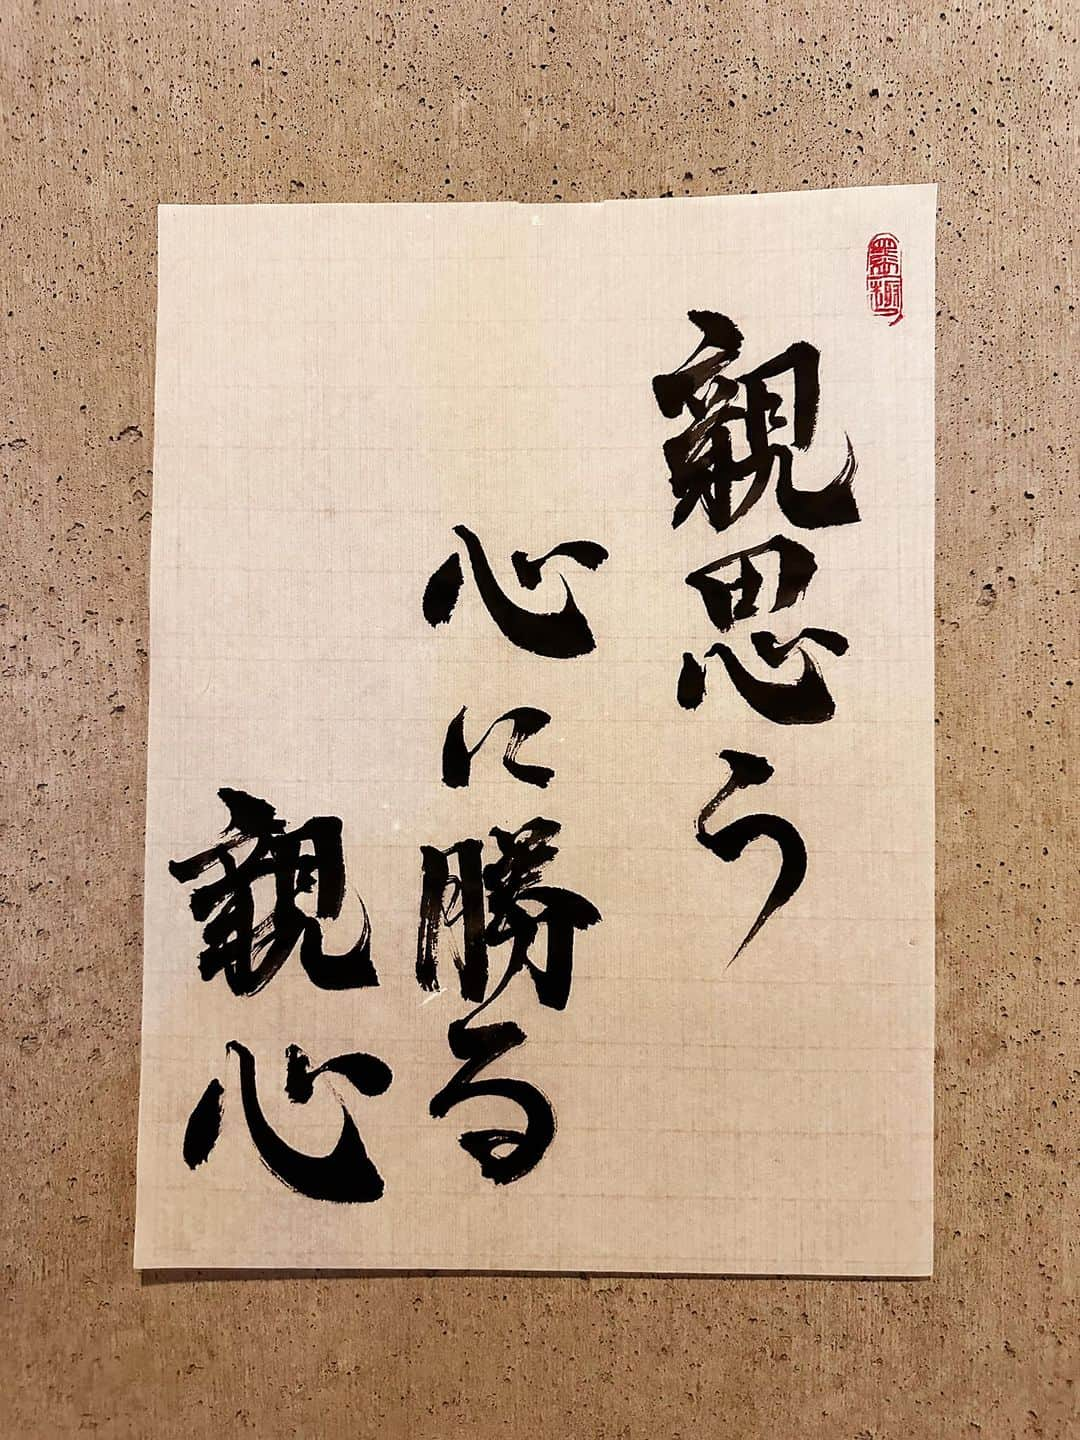 親思う
心に勝る
親心